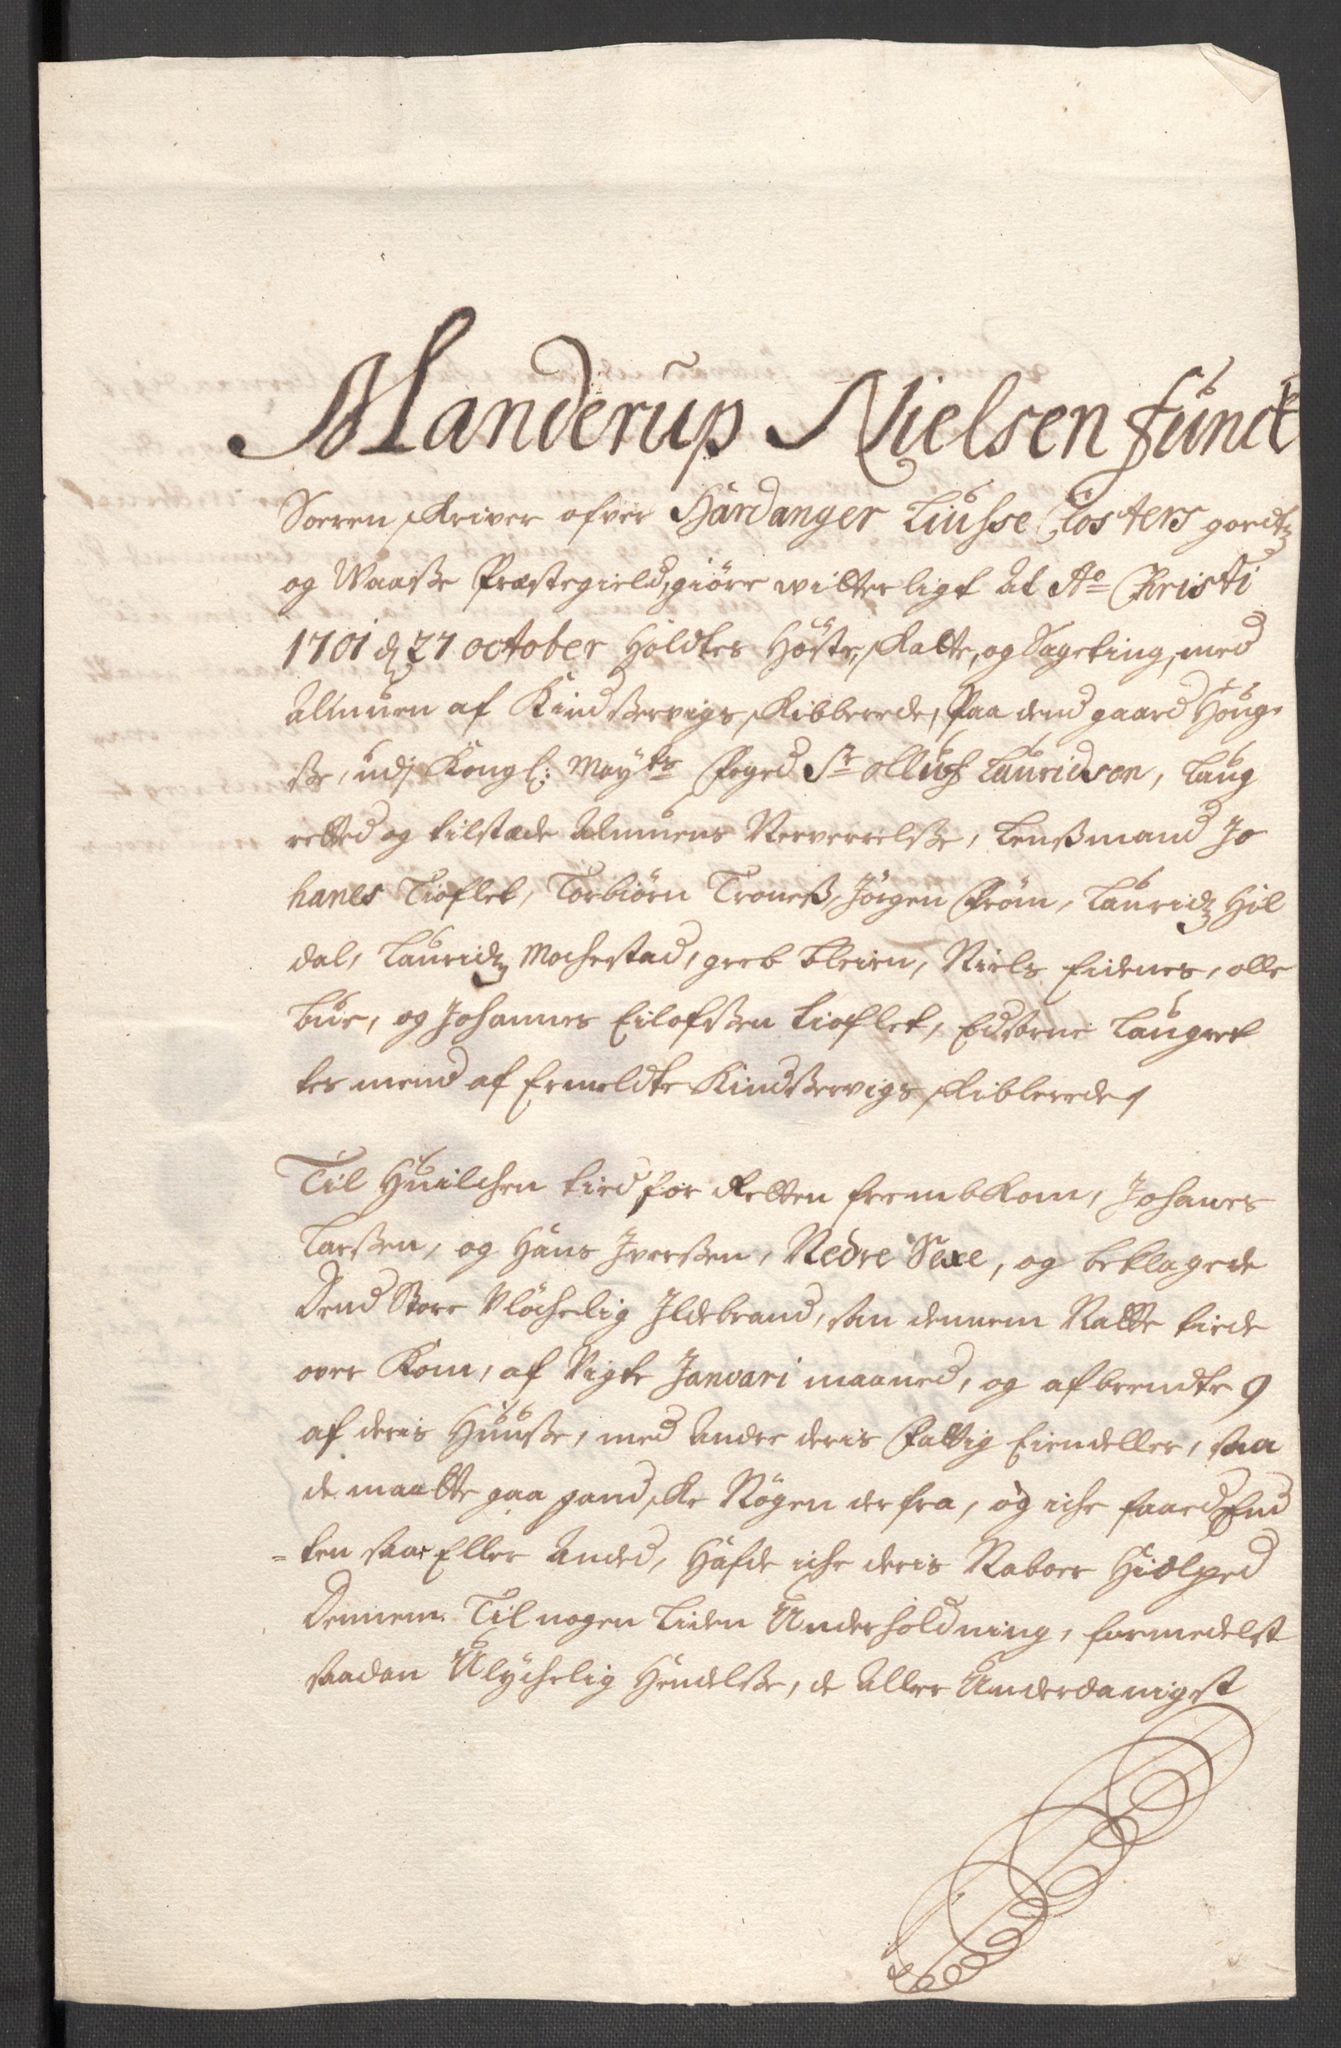 Manderup Nielsen Funck
Sorren Skriver ofver Hardanger Liusse Closters goedtz
og Waasse Præstegield, giöre witterligt at Ao Christi
1701 d 27 october Holdtes Höste, Skatte, og Sageting, med
Almuen af Kindsservigs Skibberede, Paa dend gaard Houg-
se, udj Kongl: Mayts Foged Sr olluf Lauridsøn, Laug
retted og tilstæde Almuens Nerverrelsse, Lenssmand Jo
hanes Tioflet, Torbiörn Troness, Jörgen Fröm, Lauridtz Hil
dal, Lauridtz Mochestad, greb Bleien, Niels Eidenes, olle
Bue, og Johannes Eilofssen tioflet, Edsorne Laugret
tes mend af Ermeldte Kindsservigs Skibberede,
Til Huilchen tied for Retten frembkom, Johanes
Larssen, og Hans Iverssen, Nedre Sexe, og beklagede
Dend Store Ulöchelig Ildebrand, som dennem Natte tiede
over Kom, af Nigte Januari maaned, og afbrendte 9
af deris Huusse, med andre deris Fattig Eiendeller, saa
de maatte gaa gandske Nögen derfra, og iche faaed End
ten saae Eller Anded, Hafde iche deris Naboer Hiælped
Dennem. Til nogen Liden Underholdning, formedelst
saadan Ulychelig Hendelsse, de aller Underdanigst